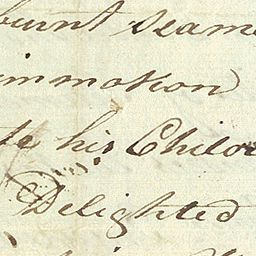 burnt seam
in motion
his Child
Delighted